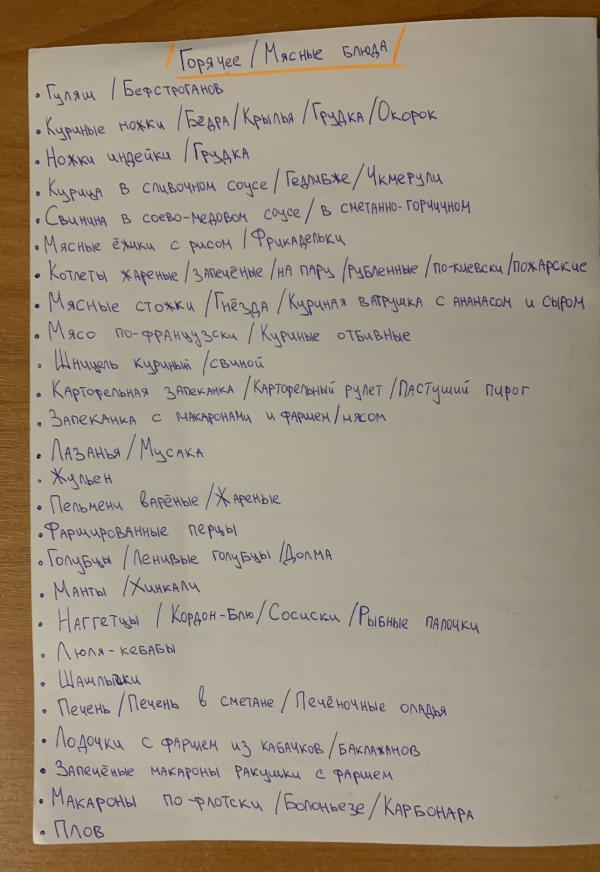 /Горячее / Мясные блюда/
• Гуляш / Бефстроганов
• Куриные ножки / Бёдра / Крылья / Грудка / Окорок
• Ножки индейки / Грудка
• Курица в сливочном соусе / Гедлибже / Чкмерули
• Свинина в соево-медовом соусе / в сметанно-горчичном
• Мясные ёжики с рисом / Фрикадельки
• Котлеты жареные / запечёные / на пару / рубленные / по-киевски / пожарские
• Мясные стожки / Гнёзда / Куриная ватрушка с ананасом и сыром
• Мясо по-французски / Куриные отбивные
• Шницель куриный / свиной
• Картофельная запеканка / Картофельный рулет / Пастуший пирог
• Запеканка с макаронами и фаршем / мясом
• Лазанья / Мусака
• Жульен
• Пельмени варёные / Жареные
• Фаршированные перцы
• Голубцы / Ленивые голубцы / Долма
• Манты / Хинкали
• Наггетцы / Кордон-Блю / Сосиски / Рыбные палочки
• Люля-кебабы
• Шашлыки
• Печень / Печень в сметане / Печёночные оладья
• Лодочки с фаршем из кабачков / баклажанов
• Запечёные макароны ракушки с фаршем
• Макароны по-флотски / Болоньезе / Карбонара
• Плов